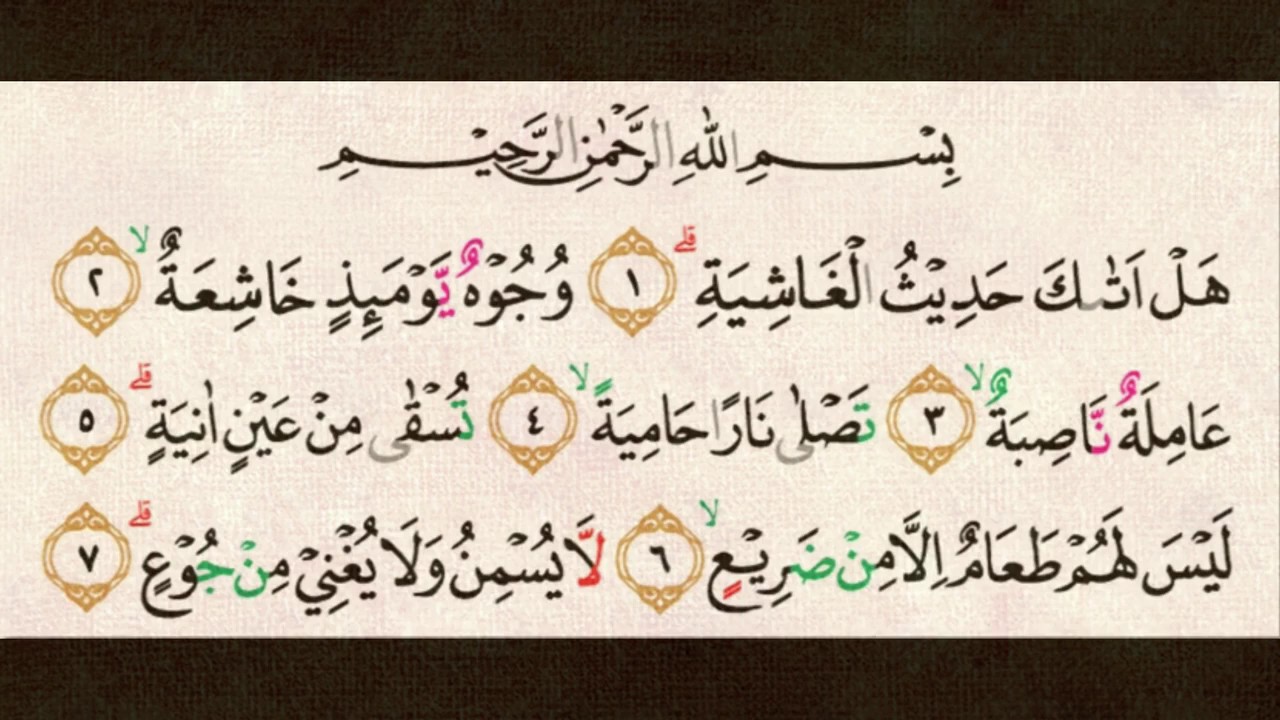 بِسْـــمِ اللهِ الرَّحْمٰنِ الرَّحِيْـــمِ
هَلْ اَتٰىكَ حَدِيْثُ الْغَاشِيَةِ ۗ ١ وُجُوْهٌ يَّوْمَىِٕذٍ خَاشِعَةٌ ۙ ٢
عَامِلَةٌ نَّاصِبَةٌ ۙ ٣ تَصْلٰى نَارًا حَامِيَةً ۙ ٤ تُسْقٰى مِنْ عَيْنٍ اٰنِيَةٍ ۗ ٥
لَيْسَ لَهُمْ طَعَامٌ اِلَّا مِنْ ضَرِيْعٍ ۙ ٦ لَّا يُسْمِنُ وَلَا يُغْنِيْ مِنْ جُوْعٍ ۗ ٧